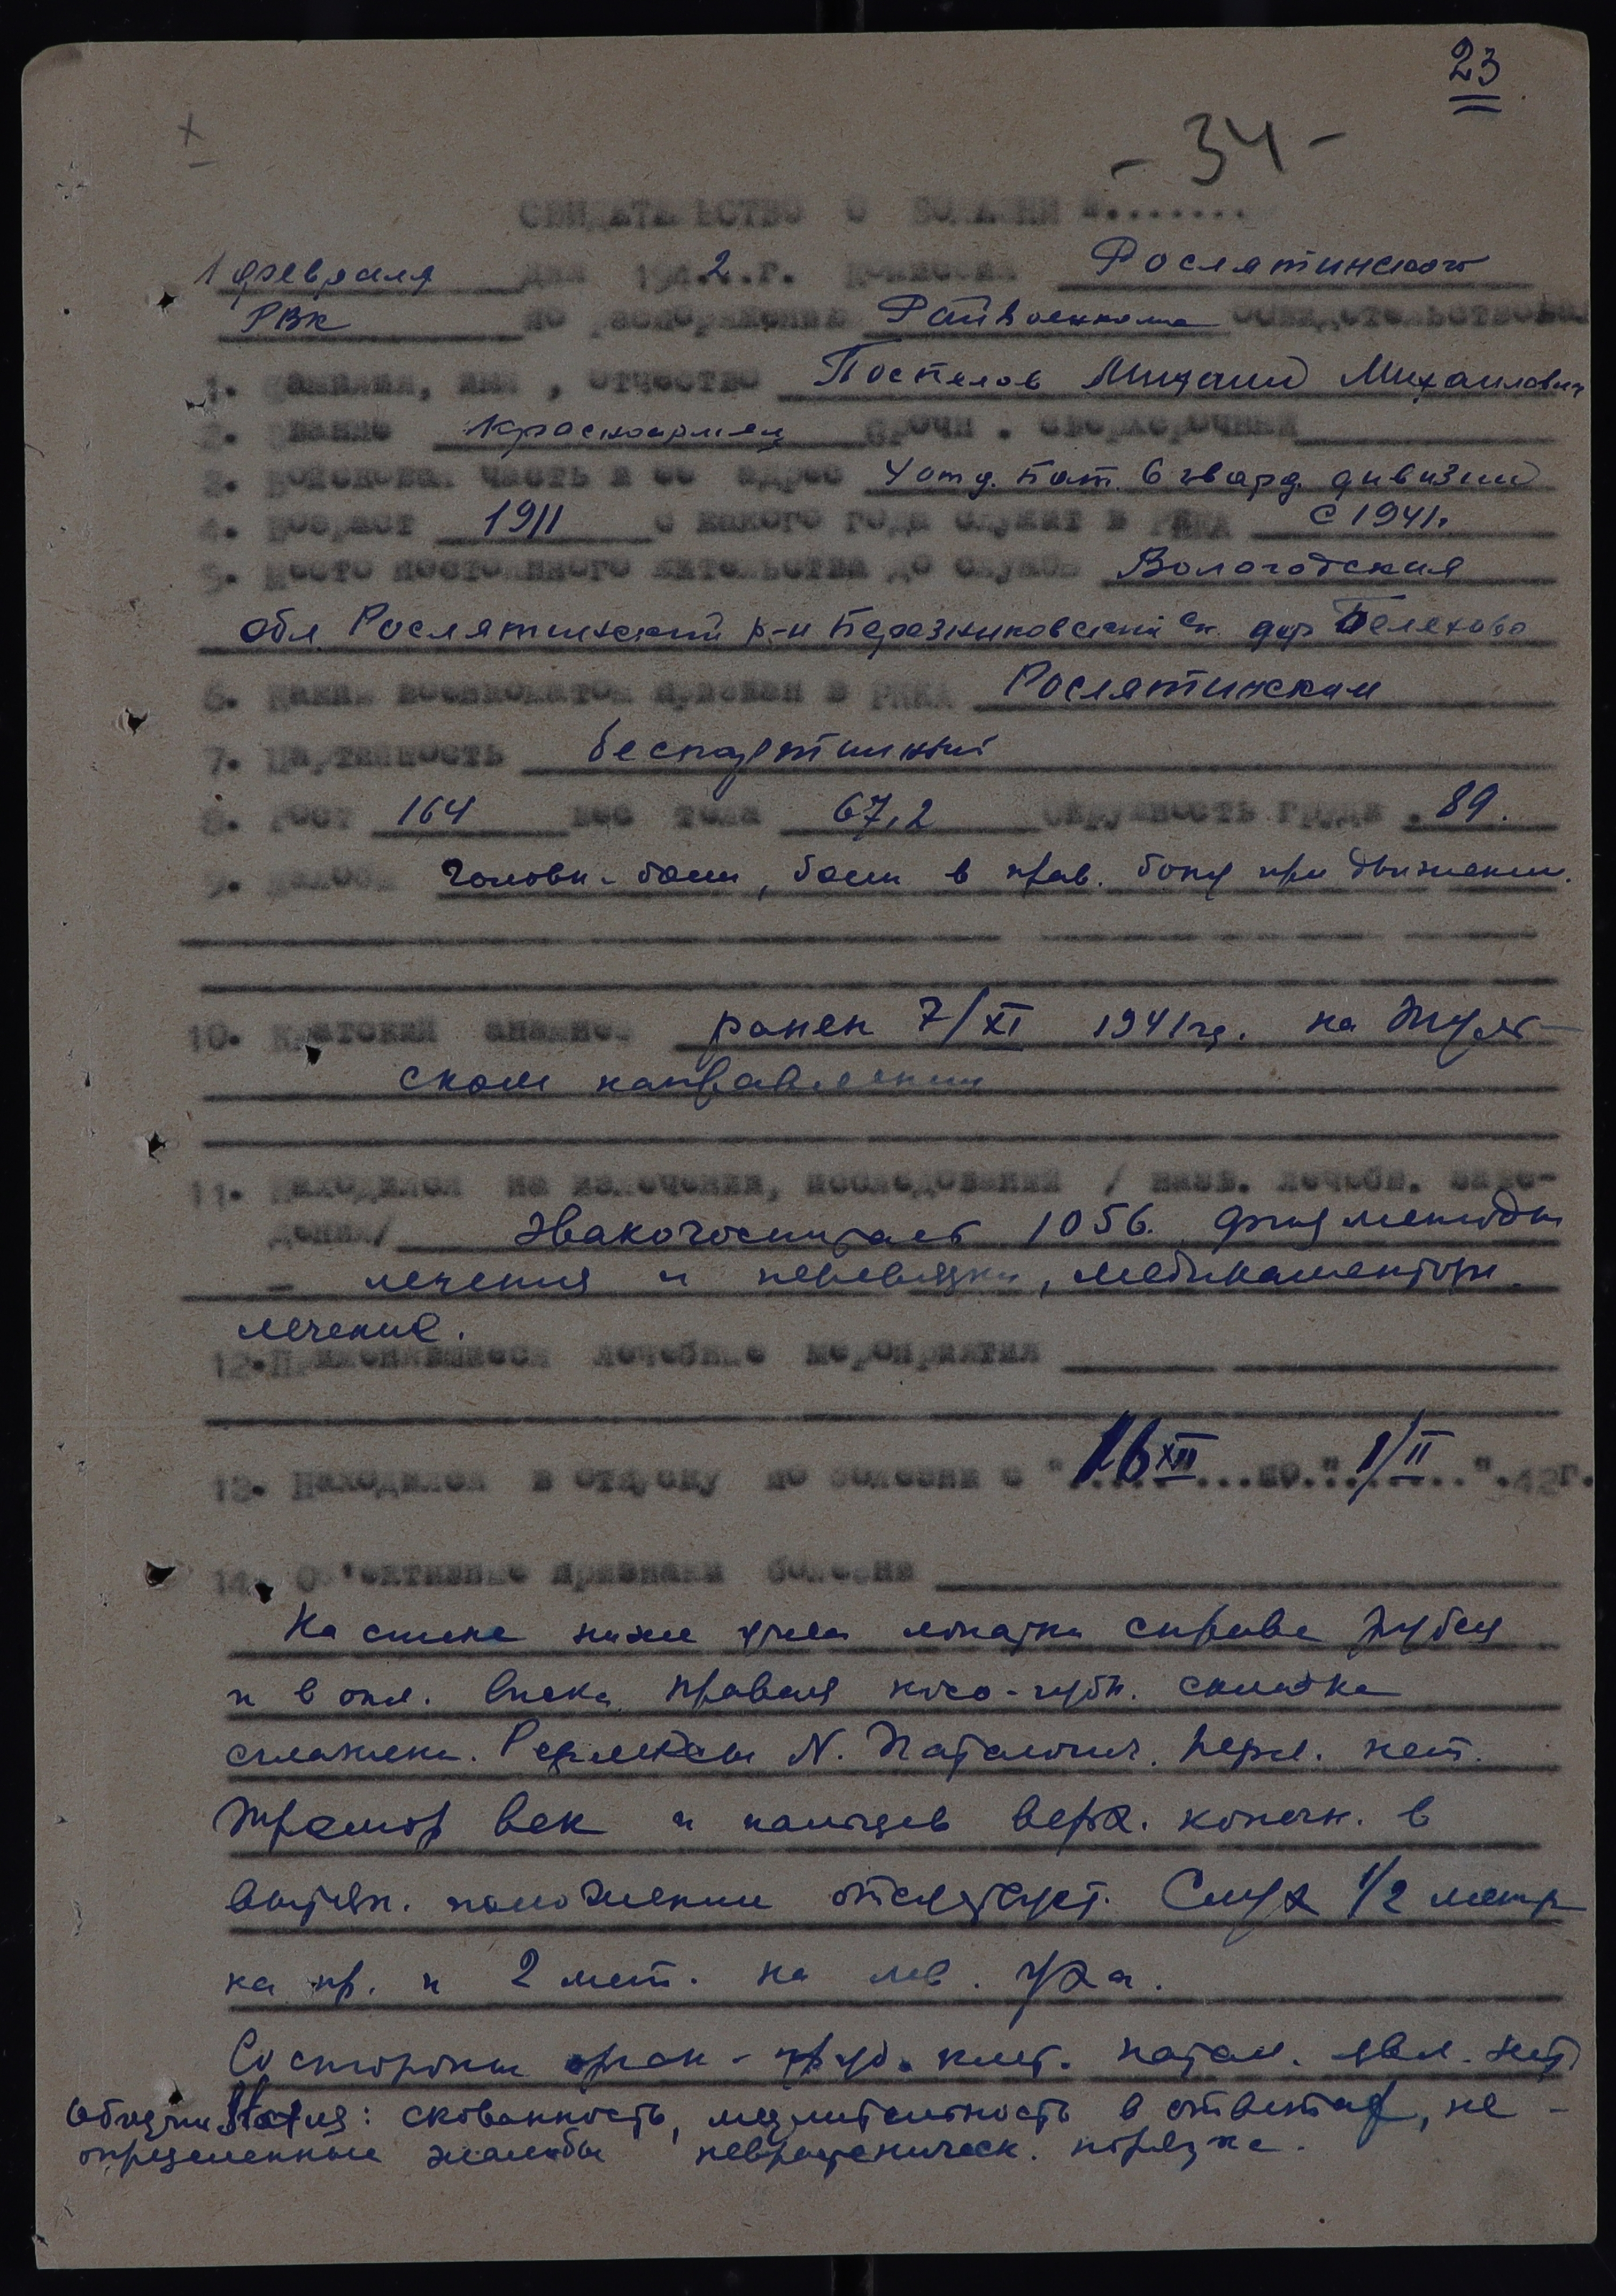 23
- 34 -
х
СВИДЕТЕЛЬСТВО О БОЛЕЗНИ №........
1 февраля дня 194.2.г. комиссия Рослятинского
РВК по распоряжению Райвоенкома освидетельствован
1. Фамилия, имя , отчество Поспелов Михаил Михаилович
2. Звание красноармеец срочн . сверхсрочный
3. Войсковая часть и ее адрес 4 отд. бат. 6 гвард. дивизии
4. Возраст 1911 с какого года служит в РККА с 1941г.
5. Место постоянного жительства до службы Вологодская
обл. Рослятинский р-н Березниковский с/с дер
6. Каким военкоматом призван в РККА Рослятинским
7. Партийность беспартийный
8. Рост 164 вес тела 67,2 Окружность груди .89.
9. Жалобы Головн. боли, боли в прав. боку при движении.
10. Краткий анамнез ранен 7/XI 1941г. на Туль-
ском направлении
11. Находился на излечении, исследовании / назв. лечебн. заве-
дения/ Эвакогоспиталь 1056. физ методы
лечения и перевязки, медикаментозн.
лечение.
12.Применявшиеся лечебные мероприятия
13. Находился в отпуску по болезни с "16 XII...по."1/II.."42г.
14. Об'ективные признаки болезни
На спине ниже угла лопатки справа рубец
и в обл. виска. правая носо-губн. складка
сглажена. Рефлексы N. Патологич. рефл. нет.
Тремор век и пальцев верх. конечн. в
вытян. положении отсутствует. Слух 1/2 метр
на пр. и 2 мет. на лев. уха.
Со стороны орган - груд. клет. патол. явл. нет
Общий Status: скованность, медлительность в ответах, не -
определенные жалобы неврастеническ. порядка.